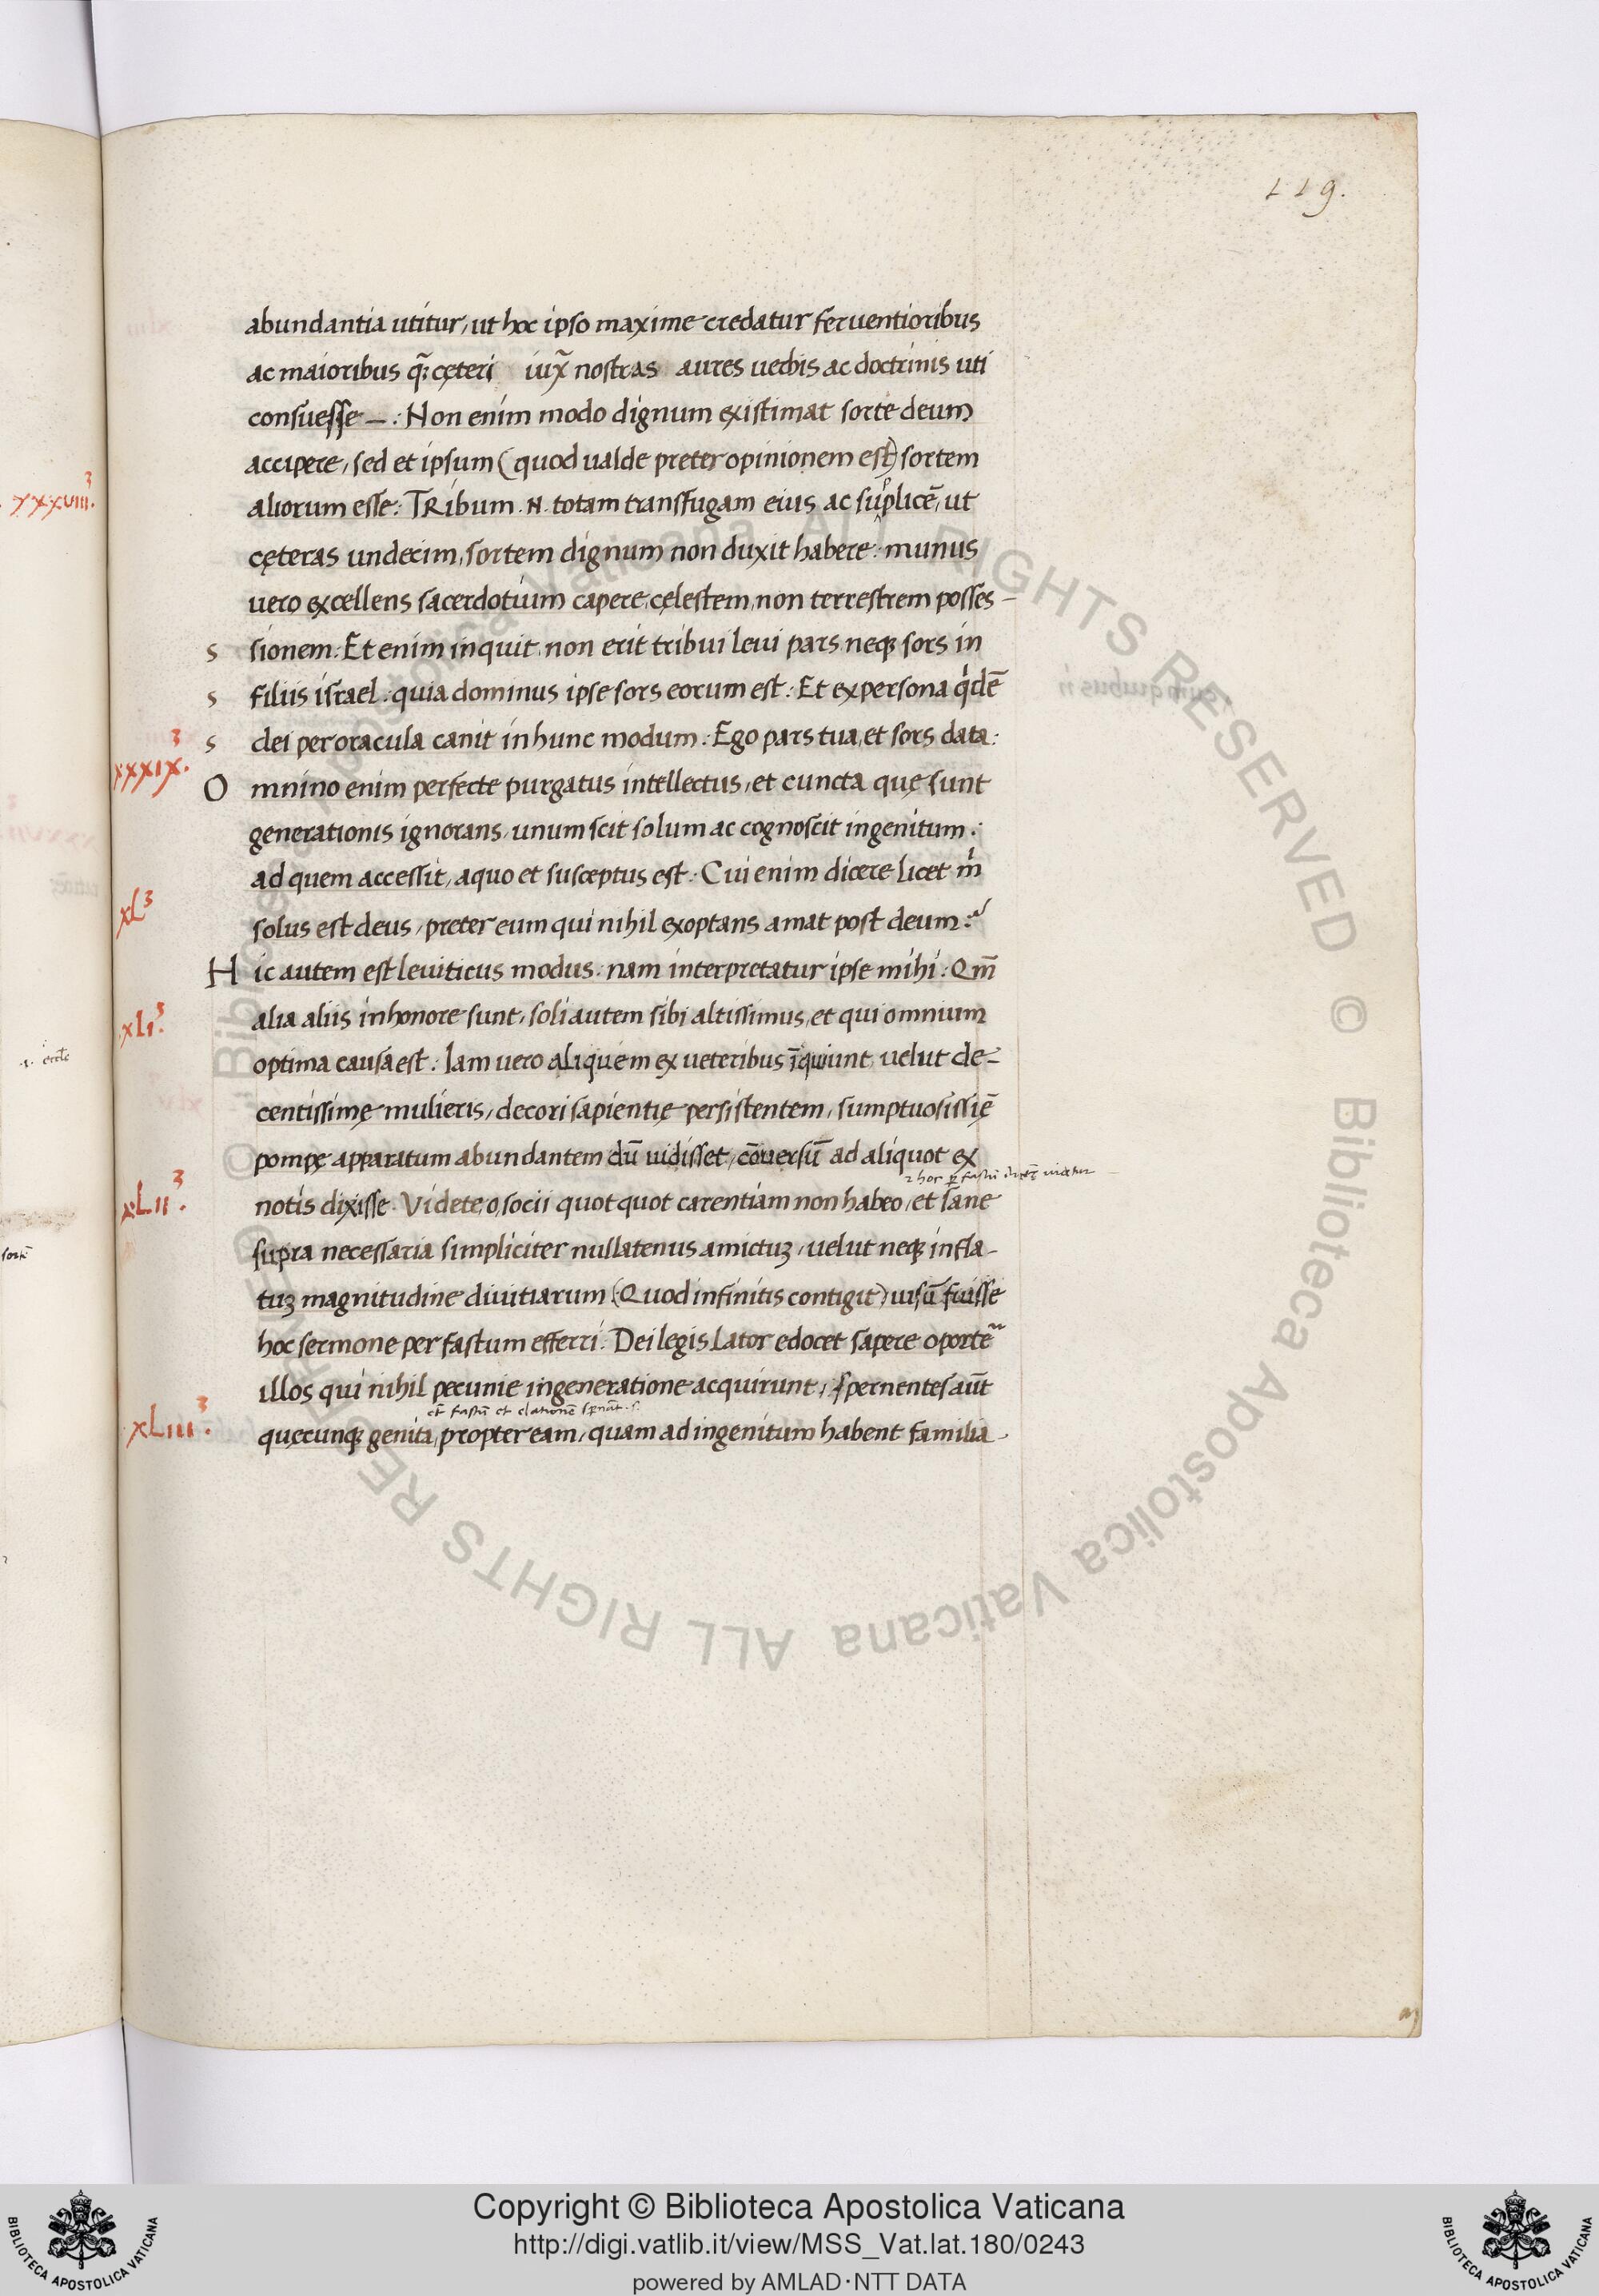 119.
abundantia utitur, ut hoc ipso maxime credatur feruentioribus
ac maioribus q̃; cęteri iux̃ nostras aures uerbis ac doctrinis uti
consuesse —. : Non enim modo dignum existimat sorte deum
accipere, sed et ipsum (quod ualde preter opinionem est) sortem
aliorum esse: Tribum .N. totam transfugam eius ac supplicẽ, ut
cęteras undecim, sortem dignum non duxit habere: munus
uero excellens sacerdotium capere, cęlestem, non terrestrem posses-
s sionem: Et enim inquit, non erit tribui leui pars neq; sors in
s filiis israel: quia dominus ipse sors eorum est: Et ex persona q'dẽ
s dei per oracula canit in hunc modum: Ego pars tua, et sors data:
xxxix.
O mnino enim perfecte purgatus intellectus, et cuncta quę sunt
generationis ignorans, unum scit solum ac cognoscit ingenitum.:
ad quem accessit, a quo et susceptus est: Cui enim dicere licet m'
xl
solus est deus, preter eum qui nihil exoptans amat post deum:
H ic autem est leuiticus modus: nam interpretatur ipse mihi: Qm̃
xli.
alia aliis in honore sunt, soli autem sibi altissimus, et qui omnium
optima causa est: Iam uero aliquem ex ueteribus ĩquiunt, uelut de-
centissimę mulieris, decori sapientię persistentem, sumptuosissię̃
pompę apparatum abundantem dũ uidisset, cõuersũ ad aliquot ex
xlii.
notis dixisse. Videte, o, socii quot quot carentiam non habeo, et sane
supra necessaria simpliciter nullatenus amictuȝ, uelut neq; infla-
tuȝ magnitudine diuitiarum (Quod infinitis contigit) uisũ fuisse
hoc sermone per fastum efferri: Dei legis lator edocet sapere oporte
illos qui nihil pecunie in generatione acquirunt, spernentes aũt
et fastũ et elationẽ
xliii.
quęcunq; genita, propter eam, quam ad ingenitum habent familia
xxxviii.
Copyright © Biblioteca Apostolica Vaticana
http://digi.vatlib.it/view/MSS_Vat.lat.180/0243
powered by AMLAD·NTT DATA
BIBLIOTECA APOSTOLICA VATICANA
BIBLIOTECA APOSTOLICA VATICANA
© Biblioteca Apostolica Vaticana ALL RIGHTS RESERVED © Biblioteca Apostolica Vaticana ALL RIGHTS RESERVED